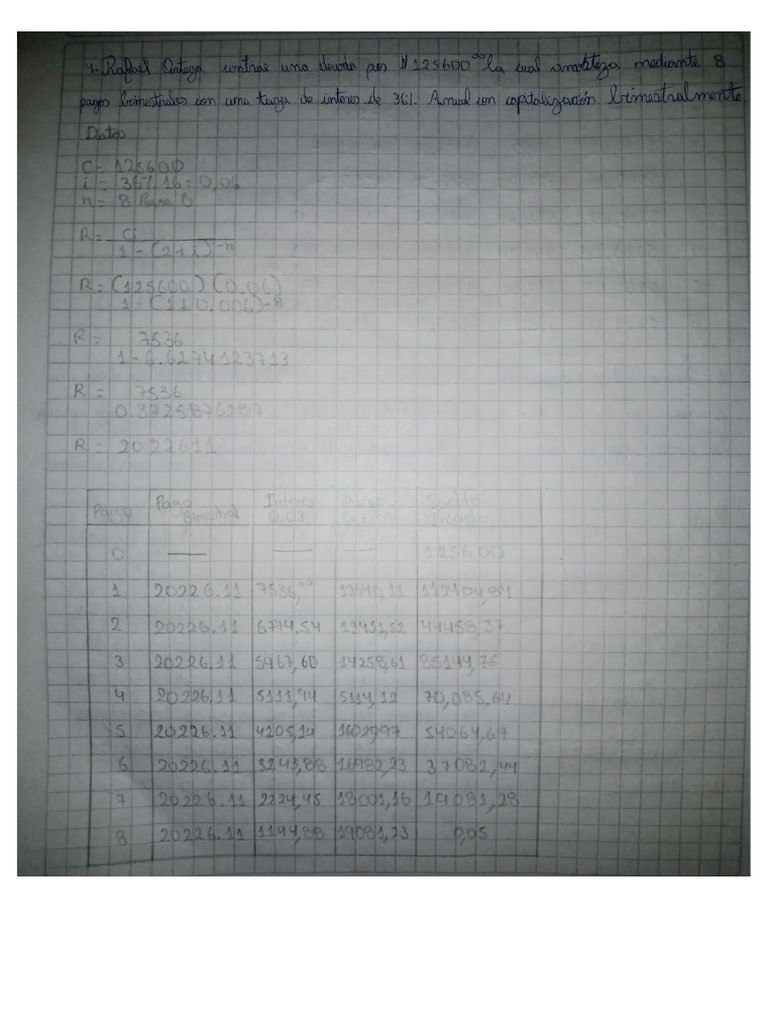 1- Rafael Ortega contrae una deuda por $125600⁰⁰ la cual amortiza mediante 8
pagos bimestrales con una taza de interes de 36%. Anual con capitalización bimestralmente
Datos
C= 125600
i= 36% 16 = 0,06
n= 8
R= Ci
1-(1+i)⁻ⁿ
R= (125600)(0.06)
1-(110.006)-8
R= 7536
1-6.6274123713
R= 7536
0.3725876287
R= 2022611
Pago Pago Bimestral Interes 0.03
0 — — — 125600
1 20226.11 7536,⁰⁰ 12690,11 112909,84
2 20226.11 6774,54 13451,52 44458,37
3 20226.11 5967,60 14258,61 85199,76
4 20226.11 5111,94 5114,12 70,085,64
5 20226.11 4205,14 1602997 54064,67
6 20226.11 3243,88 16982,23 37082,44
7 20226.11 2224,45 18001,16 19081,28
8 20226.11 1144,88 19081,23 0,05